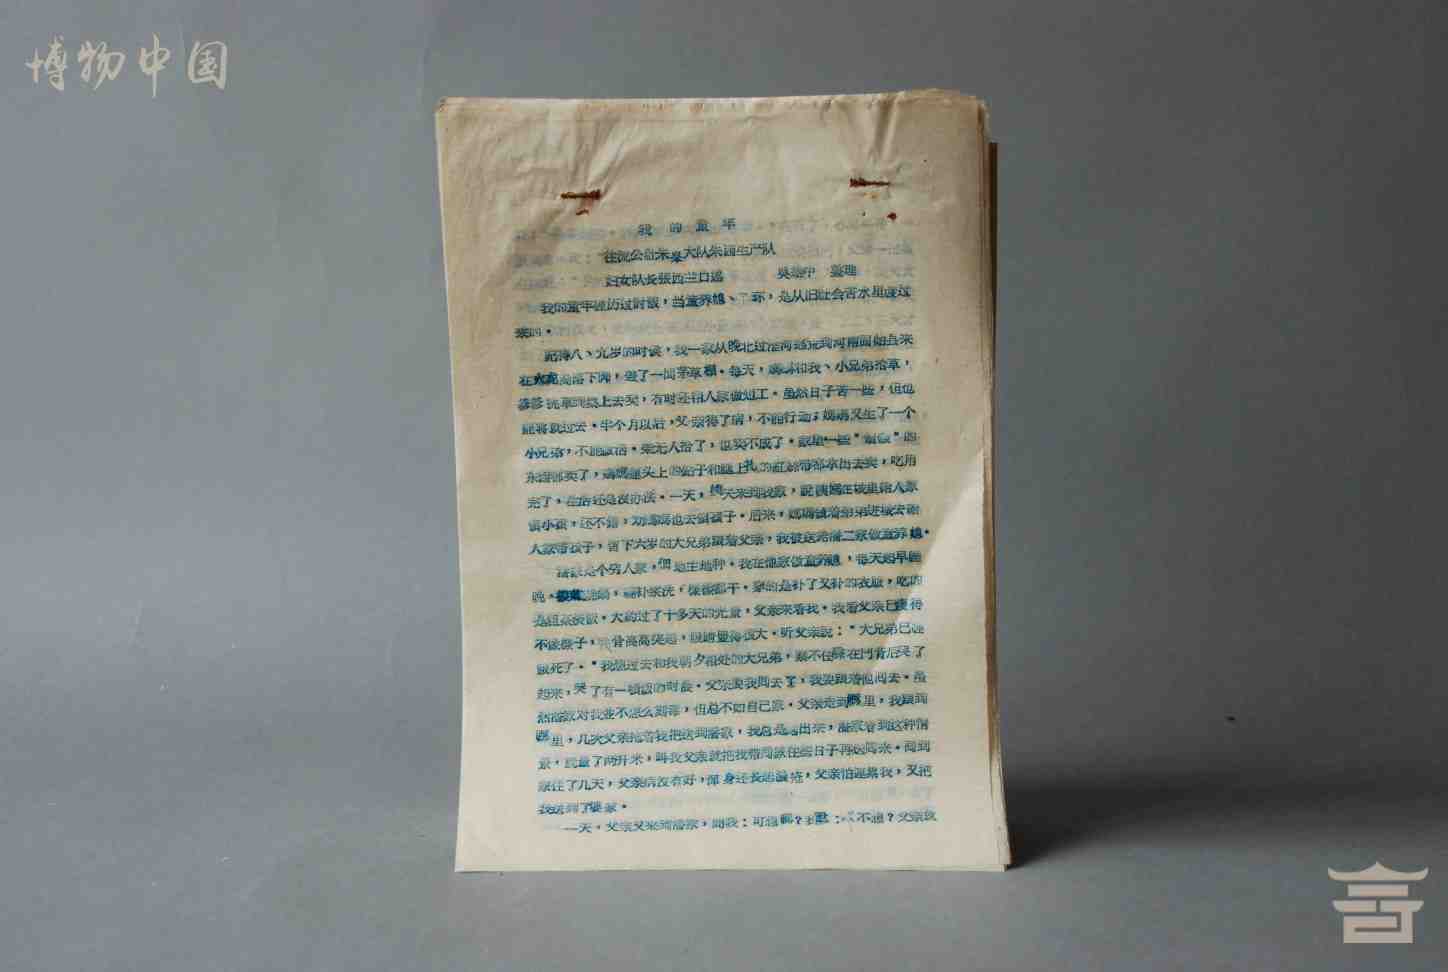 博物中国
我的童年
往流公社朱皋大队朱西生产队
妇女队长張西兰口述 整理
我的童年经历过討飯，当童养媳、丫环，是从旧社会苦水里渡过
来的。
記得八、九岁的时候，我一家从皖北过淮河逃荒到河南固始县来
在 落下脚，搭了一間茅草棚。每天，媽媽和我、小兄弟拾草，
爹爹挑草到集上去卖，有时还給人家做短工。虽然日子苦一些，但也
能将就过去。半个月以后，父亲得了病，不能行动；媽媽又生了一个
小兄弟，不能做活。柴无人拾了，也卖不成了。家里一些 的
东西都卖了，媽媽連头上的 子和腿上扎的紅綠带都拿出去卖，吃用
完了，往后还是没办法。一天， 来到我家，說 在城里給人家
小孩，还不錯，劝媽媽也去 孩子。后来，媽媽 着弟弟进城去給
人家帶孩子，留下六岁的大兄弟跟着父亲，我被送給潘二家做童养媳。
潘家是个穷人家，佃地主地种。我在他家做童养媳，每天起早睡
晚， 燒鍋，補补浆洗，样样都干。穿的是补了又补的衣服，吃的
是粗茶淡飯。大約过了十多天的光景，父亲来看我。我看父亲已瘦得
不像样子， 骨高高突起，眼睛显得很大。听父亲說：“大兄弟已經
餓死了。”我想过去和我朝夕相处的大兄弟，禁不住躲在門背后哭了
起来，哭了有一頓飯的时候。父亲要我回去了，我要跟着他回去。虽
然潘家对我並不怎么刻薄，但总不如自己家。父亲走到哪里，我跟到
哪里，几次父亲拖着我把送到潘家，我总是 出来，潘家看到这种情
景，就量了两升米，叫我父亲就把我带回家住些日子再送回来。回到
家住了几天，父亲病没有好，渾身还长起 疮，父亲怕連累我，又把
我送到了婆家。
一天，父亲又来到潘家，問我：可想 ？我 ： 不想？父亲我